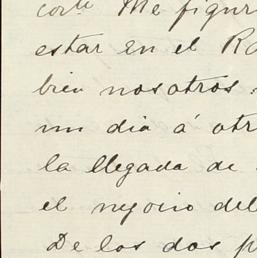 corte Me figur
estar en el Ra
bien nosotros:
un dia á otr
la llegada de
el negocio del
De los dos p